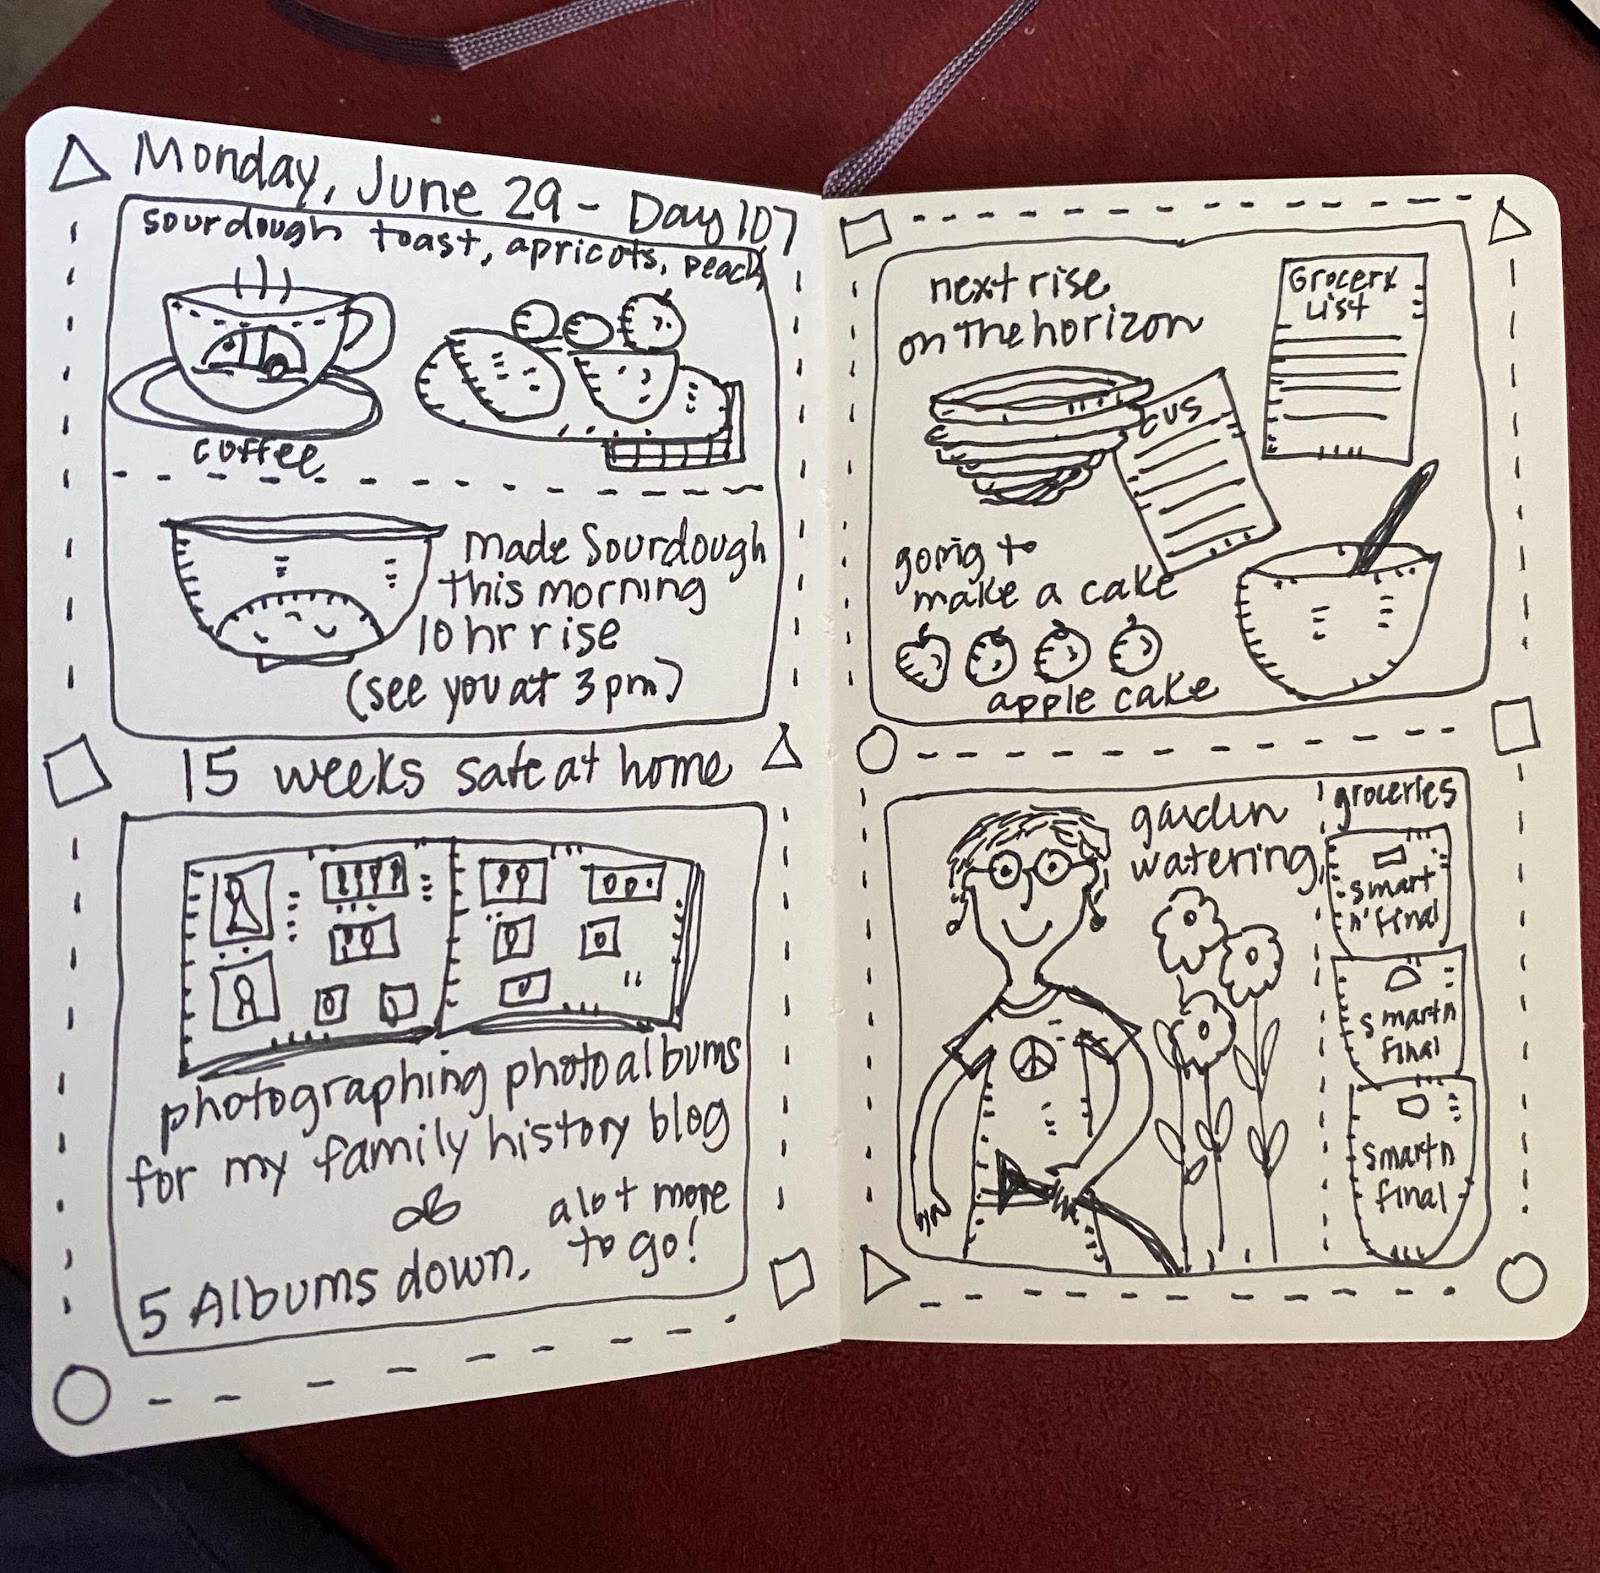 Monday, June 29 - Day 107
sourdough toast, apricots, peach
coffee
made Sourdough
this morning
10 hr rise
(see you at 3pm)
15 weeks safe at home
photographing photo albums
for my family history blog
5 Albums down,
a lot more
to go!
next rise
on the horizon
Grocery
List
CVS
going to
make a cake
apple cake
garden
watering
groceries
smart
n' final
smart n
final
smart n
final